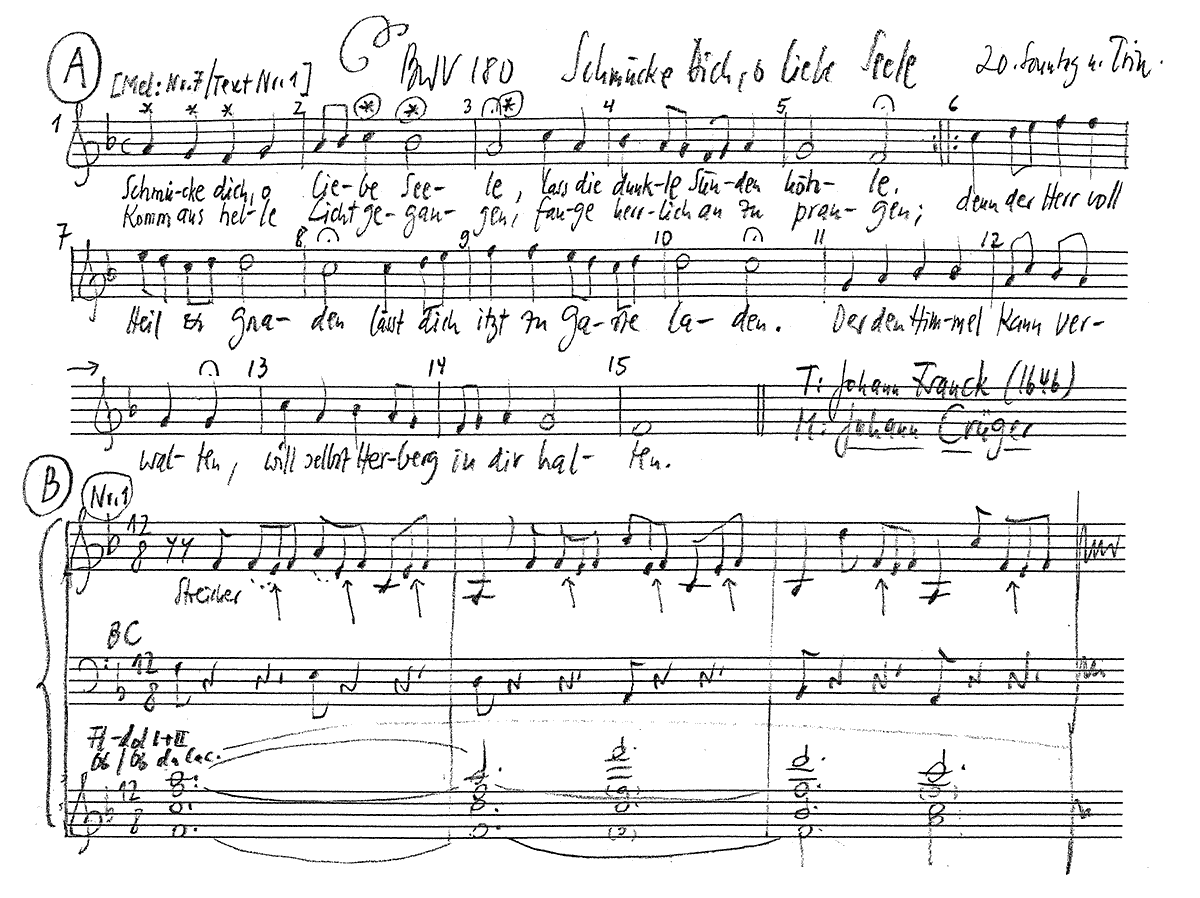 A [Mel: Nr. 7/Text Nr. 1] BWV 180 Schmücke Dich, o liebe Seele 20. Sonntag n. Trin.
* * * 2 * * 3 * 4 5 6
1
Schmü-cke dich, o Lie-be See- le, lass die dunk-le Sün-den höh- le.
Komm aus hel-le Licht ge-gan- gen, fan-ge herr-lich an zu pran- gen; denn der Herr voll
7 8 9 10 11 12
Heil & Gna- den lässt dich itzt zu Ga-ste la- den. Der den Him-mel kann ver-
→ 13 14 15
T: Johann Franck (1646)
M: Johann Crüger
wal- ten, will selbst Her-berg in dir hal- ten.
B Nr. 1
12
8
Streicher
BC
12
8
Fl-dol I+II
Ob/Ob da Cac.
12
8